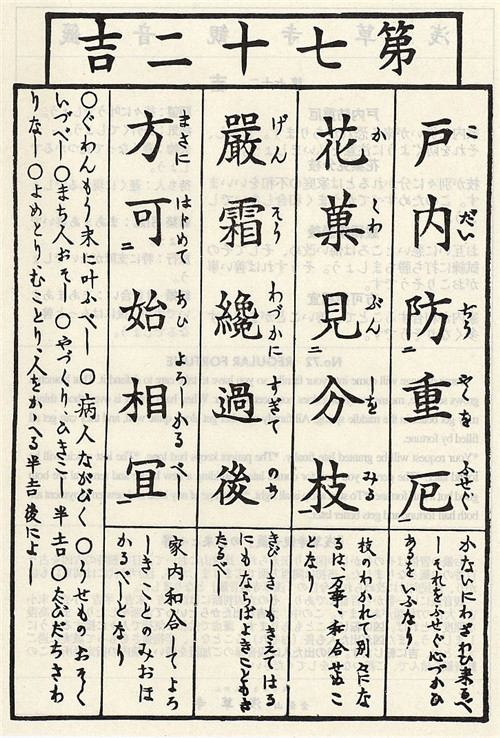 第七十二吉
こ だい ぢう やくを ふせぐ
戸内防二重厄一
かないにわざわひ来るべ
しそれをふせぐ心づかひ
あるをいふなり
か くわ ぶん しを みる
花菓見二分枝一
枝のわかれて別々にな
るは、万事、和合せぬこ
となり
げん そう わづかに すぎて のち
嚴霜纔過後
きびしきしもきえてはる
にもならばよきこともき
たるべし
まさに はじめて あひ よろしかるべし
方可二始相宜一
家内和合してよろ
しきことのみおほ
かるべしとなり
○ぐわんもう末に叶ふべし ○病人ながびく ○うせものおそく
いづべし○まち人おそし ○やづくりひきこし半吉○たびだちさわ
りなし○よめとり、むことり、人をかゝへる半吉後によし